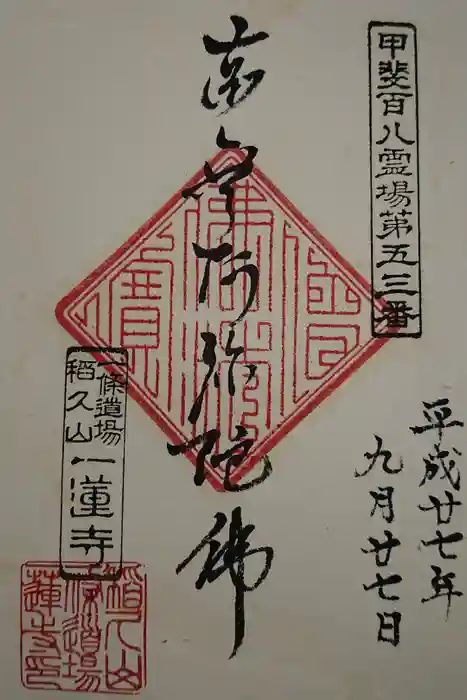 甲斐百八霊場第五三番
平成廿七年
九月廿七日
南無阿弥陀佛
佛法僧寶
一條道場
稲久山
一蓮寺
稲久山
一條道場
蓮寺印